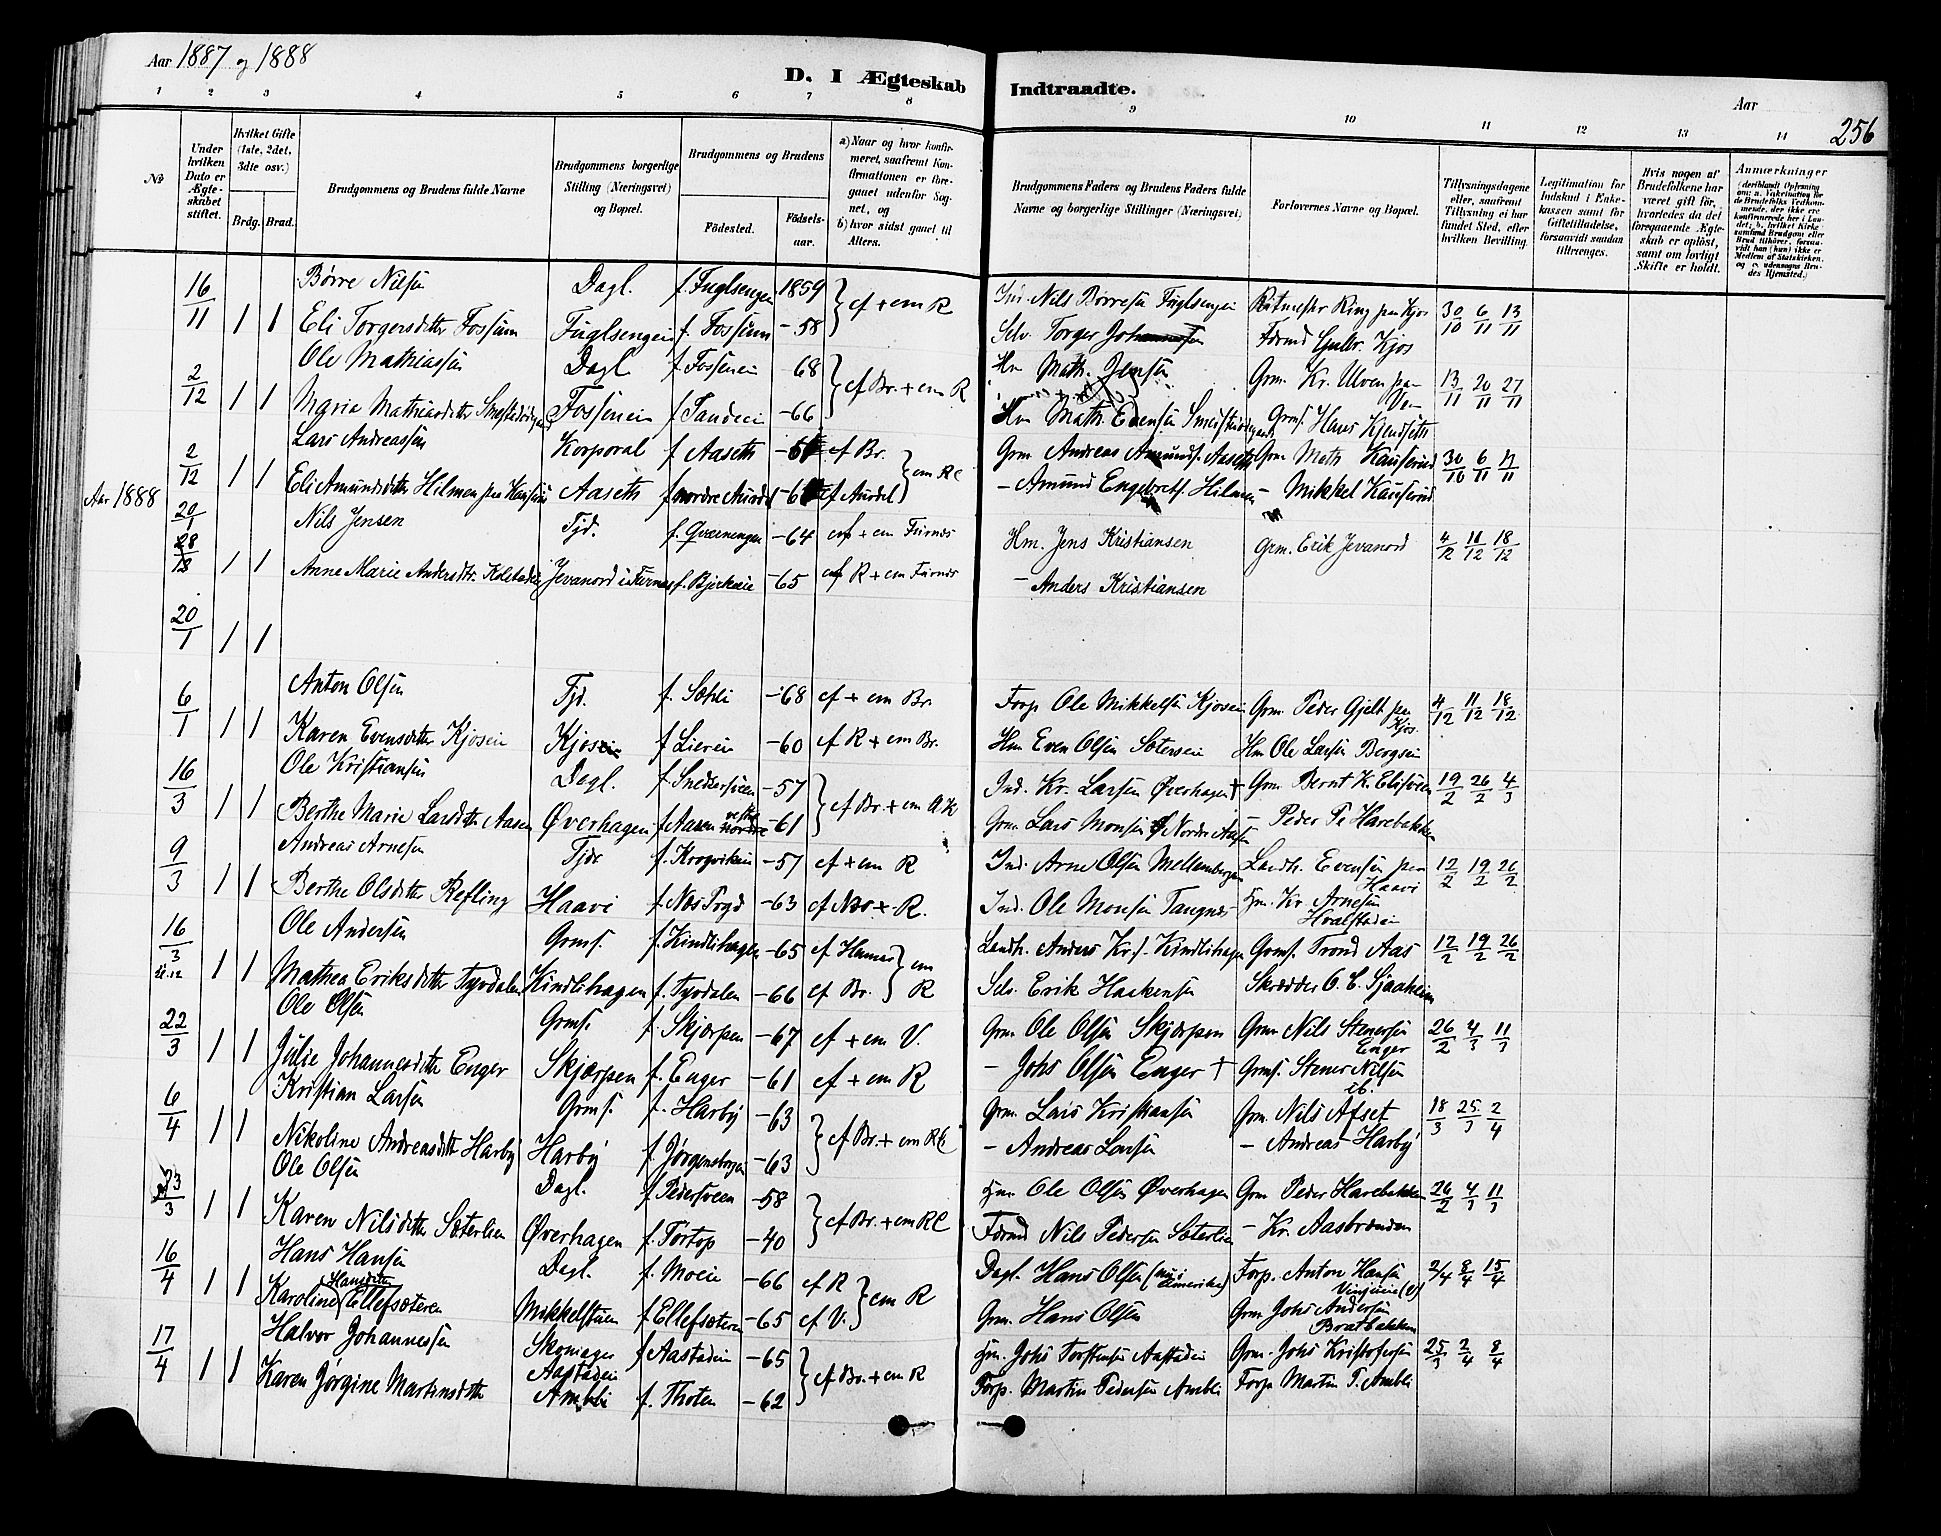 Aar 1887 og 1888
D. I Ægteskab Indtraadte.
Aar
256
1 2 3 4 5 6 7 8 9 10 11 12 13 14
No
Under hvilken Dato er Ægteskabet stiftet.
Hvilket Gifte (1ste, 2det, 3die osv.)
Brdg. Brud.
Brudgommens og Brudens fulde Navne
Brudgommens borgerlige Stilling (Næringsvei) og Bopæl.
Brudgommens og Brudens
Fødested.
Fødselsaar.
a) Naar og hvor konfirmeret, saafremt Konfirmationen er foregaaet udenfor Sognet, og
b) hvor sidst gaaet til Alters.
Brudgommens Faders og Brudens Faders fulde Navne og borgerlige Stillinger (Næringsvei)
Forlovernes Navne og Bopæl.
Tillysningsdagene eller, saafremt Tillysning ei har fundet Sted, efter hvilken Bevilling.
Legitimation for Indskud i Enkekassen samt for Giftetilladelse, forsaavidt saadan tiltrænges.
Hvis nogen af Brudefolkene har været gift før, hvorledes da det foregaaende Ægteskab er opløst, samt om lovligt Skifte er holdt.
Anmærkninger
16/11 1 1 Børre Nilsen Dagl. f. Fuglsengen 1859 cf + em R Ind. Nils Børresen Fuglsengen Ritmester Ring paa Kjos 30/10 6/11 13/11
Eli Torgersdatter Fossum Fuglsengen f. Fossum -58 Selv. Torger Johannesen Formd Gulbr. Kjos
2/12 1 1 Ole Mathiassen Dagl f Fosseneie -68 cf Br. + em R Hm Math. Jensen Grm. Kr. Ulven paa 13/11 20/11 27/11
Maria Mathiasdatter Fosseneie f -66 Hm Math. Evensen Grms. Hans Kjendseth
2/12 1 1 Lars Andreassen Korporal f Aaseth cf Br. em RC Grm Andreas Amunds. Aaseth Grm Math Kauserud 30/10 6/11
Eli Amundsdatter Hilmen Aaseth f nordre Aurdal cf Aurdal - Amund Engebrets. Hilmen - Mikkel Kauserud
Aar 1888
20/1 Nils Jensen Tjd. f. Qværnengen -64 cf + em Furnes Hm. Jens Kristiansen Grm. Erik Jevanord 4/12 11/12 18/12
28/12 1 1 Anne Marie Andersdtr. Kolstadeie Jevanord i Furnes f. Bjerkeeie -65 cf R + em Furnes - Anders Kristiansen
20/1 1 1
6/1 1 1 Anton Olsen Tjd. f. Sæhli -68 cf + em Br. Forp Ole Mikkelsen Kjoseie Grm. Peder Gjelt paa Kjos. 4/12 11/12 18/12
Karen Evensdatter Kjoseie Kjoseie f Liereie -60 cf R + em Br. Hm Even Olsen Sæterseie Hm Ole Larsen Bergseie
16/3 1 1 Ole Kristiansen Dagl. f. Snekkersveen -57 cf Br. + em A.K Ind. Kr. Larsen Øverhagen + Grm Bernt K. Elisveen 19/2 26/2 4/3
Berthe Marie Larsdatter Aasen Øverhagen f Aasen nordre vestre -61 Grm. Lars Monsen Nordre Aasen - Peder P. Harebakken
9/3 1 1 Andreas Arnesen Tjd. f. Krogvikeie -57 cf + em R Ind. Arne Olsen Mellembergen Landh. Evensen paa Haavi 12/2 19/2 26/2
Berthe Olsdatter Refling Haavi f. Næs Prgd -63 cf Næs + R. Ind. Ole Monsen Tangnes Hm. Kr. Arnesen Hvalstadeie
16/3 1 1 Ole Andersen Grms. f. Kindlihagen -65 cf Hamar em R Landh. Anders Kr.s. Kindlihagen Grms. Trond Aas 12/2 19/2 26/2
Mathea Eriksdatter Tyvdalen Kindlihagen f. Tyvdalen -66 cf Br. Selv. Erik Haakensen Skrædder O. E. Sjaaheim
22/3 1 1 Ole Olsen Grms. f. Skjærpen -67 cf + em V. Grm. Ole Olsen Skjærpen Grm Nils Stenersen Enger 26/2 4/3 11/3
Julie Johannesdatter Enger Skjærpen f. Enger -61 cf + em R - Johs Olsen Enger + Grms. Stener Nilsen ib.
6/4 1 1 Kristian Larsen Grms. f. Harby -63 cf Br. + em RC Grm. Lars Kristiansen Grm. Nils Afset 18/3 25/3 2/4
Nikoline Andreasdatter Harby Harby f. Jørgensborgen -63 - Andreas Larsen - Andreas Harby
23/3 1 1 Ole Olsen Dagl. f. Pedersveen -58 cf Br. + em RC Hm. Ole Olsen Øverhagen Grm Peder Harebakken 26/2 4/3 11/3
Karen Nilsdatter Sæterlien Øverhagen f. Tortop -40 Formd Nils Pedersen Sæterlien - Kr. Aasbrænden
16/4 1 1 Hans Hansen Dagl. f. Moeie -66 cf R em R Dagl. Hans Olsen (nu i Amerika) Forp. Anton Hansen Vinjeeie 2/4 8/4 15/4
Karoline Hansdatter Ellefsæteren Mikkelstuen f. Ellefsæteren -65 cf V. Grm. Hans Olsen Grm Johs Andersen Bratbakken
17/4 1 1 Halvor Johannessen Skomager Aastadeie f Aastadeie -65 cf Br. + em R Hm. Johs Torstensen Aastadeie Grm. Johs Kristofersen 25/3 2/4 8/4
Karen Jørgine Martinsdatter Ambli f. Thoten -62 Forp. Martin Pedersen Ambli Forp Martin P. Ambli